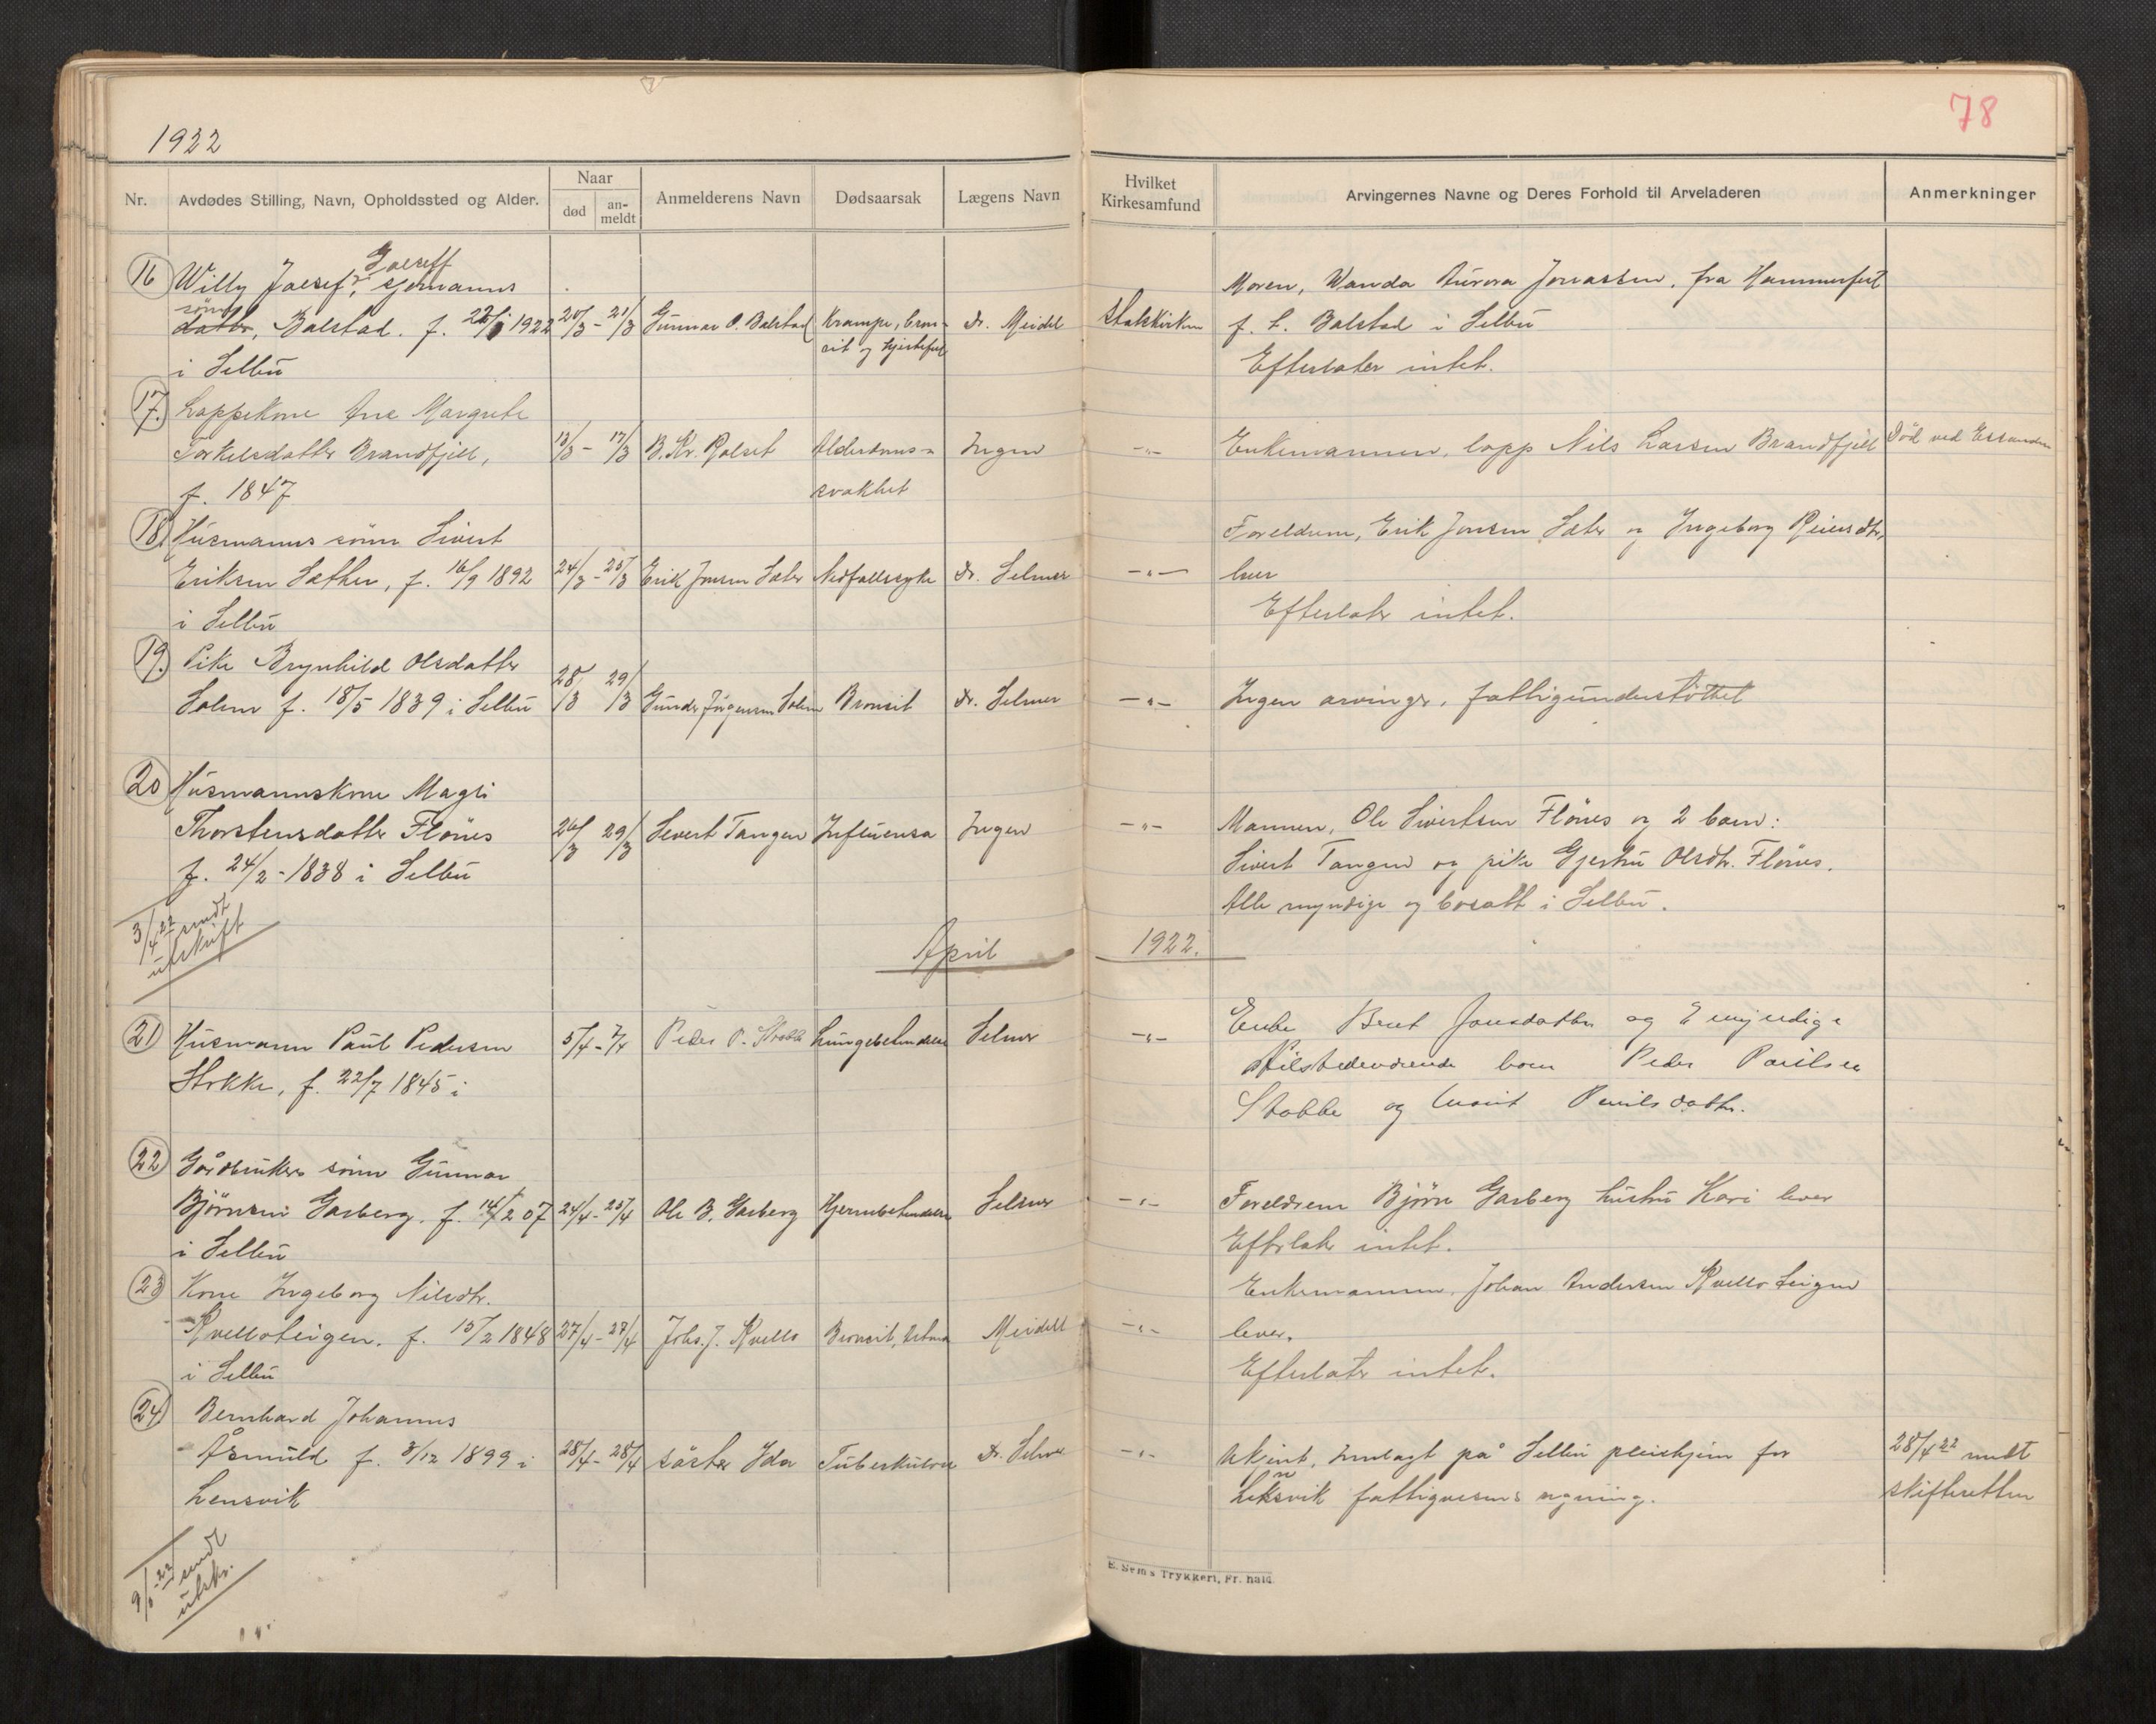 1922
78
Nr.
Avdødes Stilling, Navn, Opholdssted og Alder.
Naar
død
an-
meldt
Anmelderens Navn
Dødsaarsak
Lægens Navn
Hvilket
Kirkesamfund
Arvingernes Navne og Deres Forhold til Arveladeren
Anmerkninger
16
Willy Joesef, Hjemanns
sönn
datter, Balstad. f. 22/1 1922
i Selbu
20/3 - 21/3
Gunnar O. Balstad
Krampe, bron-
sit og hjertefeil
Dr. Meidel
Statskirken
Moren, Wanda Aurora Jonassen, fra Hammerfest
f. t. Balstad i Selbu
Efterlater intet.
17.
Lappekone Ane Margrete
Torkelsdatter Brandfjell,
f. 1847
13/3 - 17/3
B. Kr. Rolset
Alderdoms-
svakhet
Ingen
-"-
Enkemannen, lapp Nils Larsen Brandfjell
Död ved Essanden
18.
Husmanns sönn Sivert
Eriksen Sæther, f. 16/9 1892
i Selbu
24/3 - 25/3
Erik Jonsen Sæter
Nedfallssyke
Dr. Selmer
-"-
Foreldrene, Erik Jonsen Sæter og Ingeborg Reiersdtr,
lever
Efterlater intet.
19.
Pike Brynhild Olsdatter
Solem f. 18/5 1839 i Selbu
28/3 29/3
Gunder Jörgensen Solem
Bronsit
Dr. Selmer
-"-
Ingen arvinger, fattigunderstöttet
20
Husmannskone Magli
Thorstensdatter Flönes
f. 24/2 - 1838 i Selbu
26/3 29/3
Severt Tangen
Influensa
Ingen
-"-
Mannen, Ole Sivertsen Flönes og 2 barn:
Sivert Tangen og pike Gjertru Olsdtr. Flönes.
Alle myndige og bosatt i Selbu.
3/4 22 sendt
utskrift
April 1922.
21
Husmann Paul Pedersen
Stokke, f. 22/7 1845 i
5/4 - 7/4
Peder P. Stokke
Lungebetendelse
Selmer
-"-
Enke Beret Jonsdatter og 2 myndige
tilstedeværende born Peder Paulsen
Stokke og Marit Paulsdatter.
22
Gårdbrukers sönn Gunnar
Bjørnsen Garberg, f. 14/2 07
i Selbu
24/4 - 25/4
Ole B. Garberg
Hjernebetendelse
Selmer
-"-
Foreldrene Bjørn Garberg hustru Kari lever
Efterlater intet.
23
Kone Ingeborg Nilsdtr.
Kvelloteigen. f. 15/2 1848
i Selbu
27/4 - 27/4
Johs. J. Kvello
Bronsit, Astma
Meidell
-"-
Enkemannen, Johan Andersen Kvelloteigen
lever.
Efterlater intet.
24
Bernhard Johannes
Åsmuld f. 3/12 1899 i
Lensvik
28/4 - 28/4
söster Ida
Tuberkulose
Dr. Selmer
-"-
Ukjent, innlagt på Selbu pleiehjem for
Leksvik fattigvesens regning.
28/4 22 meldt
skifteretten
9/5 - 22 sendt
utskr.
E. Sem's Trykkeri, Fr.hald.